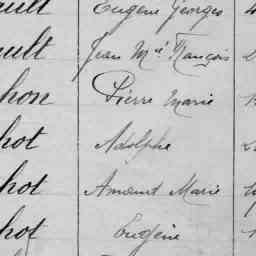 ult Eugène Georges
ult Jean Mie François
hon Pierre Marie
hot Adolphe
hot Amount Marie
hot Eugène